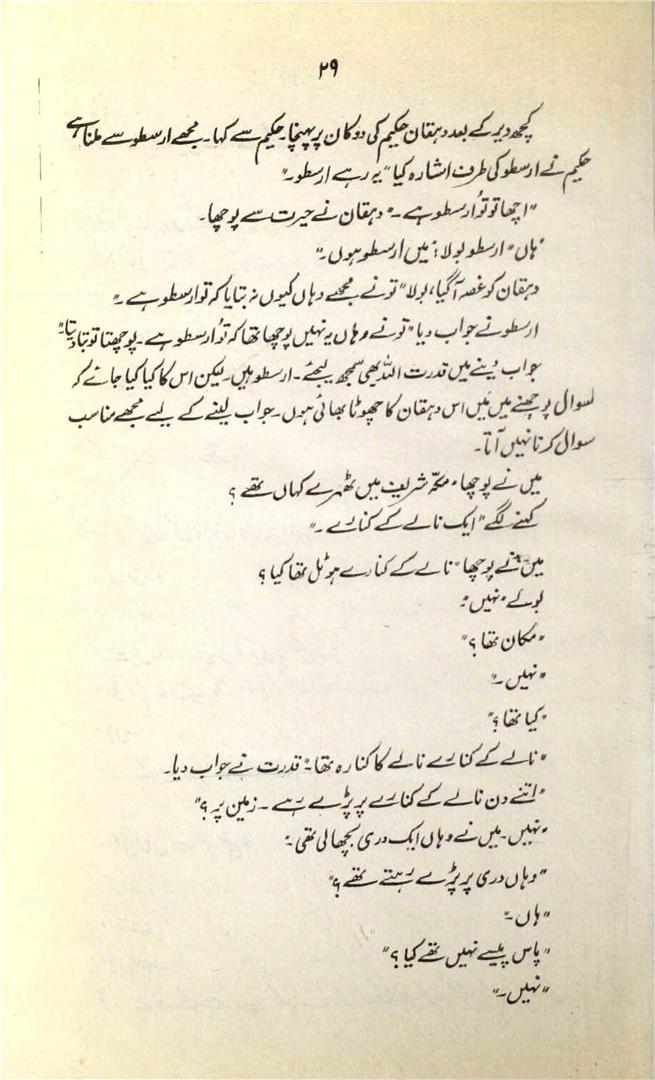 ۲۹
کچھ دیر کے بعد دہقان حکیم کی دوکان پر پہنچا۔ حکیم سے کہا۔ مجھے ارسطو سے ملنا ہے
حکیم نے ارسطو کی طرف اشارہ کیا "یہ رہے ارسطو۔"
"اچھا تو تُو ارسطو ہے۔" دہقان نے حیرت سے پوچھا۔
"ہاں" ارسطو بولا: "میں ارسطو ہوں۔"
دہقان کو غصہ آگیا، بولا "تو نے مجھے وہاں کیوں نہ بتایا کہ تو ارسطو ہے۔"
ارسطو نے جواب دیا "تو نے وہاں یہ نہیں پوچھا تھا کہ تُو ارسطو ہے۔ پوچھتا تو بتا دیتا۔"
جواب دینے میں قدرت اللہ بھی سمجھ لیجئے۔ ارسطو ہیں۔ لیکن اس کا کیا کیا جائے کہ
سوال پوچھنے میں مَیں اس دہقان کا چھوٹا بھائی ہوں۔ جواب لینے کے لیے مجھے مناسب
سوال کرنا نہیں آتا۔
میں نے پوچھا "مکہ شریف میں ٹھہرے کہاں تھے؟
کہنے لگے "ایک نالے کے کنارے۔"
میں نے پوچھا "نالے کے کنارے ہوٹل تھا کیا؟
بولے "نہیں"
"مکان تھا؟"
"نہیں۔"
"کیا تھا؟"
"نالے کے کنارے نالے کا کنارہ تھا۔" قدرت نے جواب دیا۔
"اتنے دن نالے کے کنارے پر پڑے رہے۔ زمین پہ؟"
"نہیں۔ میں نے وہاں ایک دری بچھالی تھی۔"
"وہاں دری پر پڑے رہتے تھے؟"
"ہاں۔"
"پاس پیسے نہیں تھے کیا؟"
"نہیں۔"